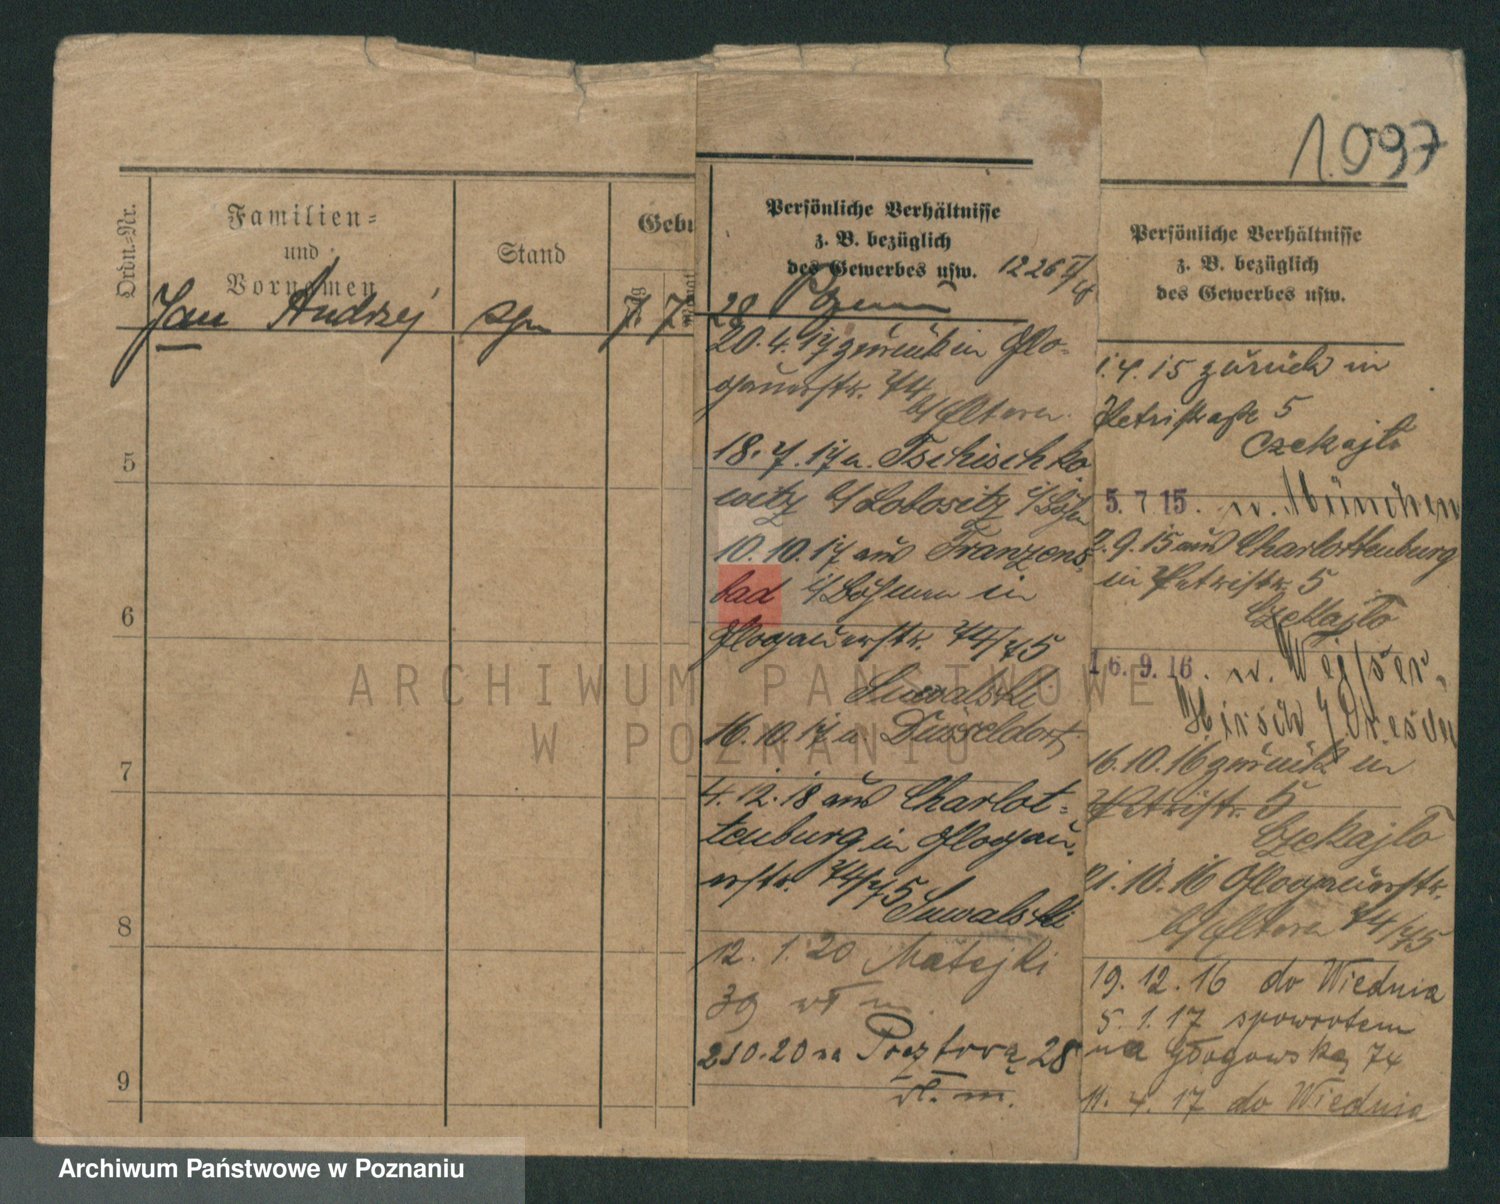 1.097
Ordn.-Nr.
Familien-
und
Vornamen
Stand
Gebu
Tag
Monat
Jan Andrzej syn 7. 7 28
5
6
7
8
9
Persönliche Verhältnisse
z. B. bezüglich
des Gewerbes usw.
20.4.17 zurück in Glo-
gauerstr. 74
b/Eltern
18.7.17 n. Tschischko
witz b/Lobositz i/Böhm
10.10.17 aus Franzens-
bad i/Böhmen in
Glogauerstr. 74/75
Suwalski
16.10.17 n. Düsseldorf
4.12.18 aus Charlot-
tenburg in Glogau-
erstr. 74/75
Suwalski
12.1.20 Matejki
wł m.
210.20 na Pocztową 28
wł. m.
Persönliche Verhältnisse
z. B. bezüglich
des Gewerbes usw.
1.4.15 zurück in
Petristraße 5
Czekajło
5.7.15. n. München
2.9.15 aus Charlottenburg
in Petristr. 5
Czekajło
16.9.16. n. Weisser-
Hirsch / Dresden
16.10.16 zurück in
Petristr. 5
Czekajło
21.10.16 Glogauerstr.
b/Eltern 74/75
19.12.16 do Wiednia
5.1.17 spowrotem
na Głogowską 74
11.4.17 do Wiednia
ARCHIWUM PAŃSTWOWE
W POZNANIU
Archiwum Państwowe w Poznaniu